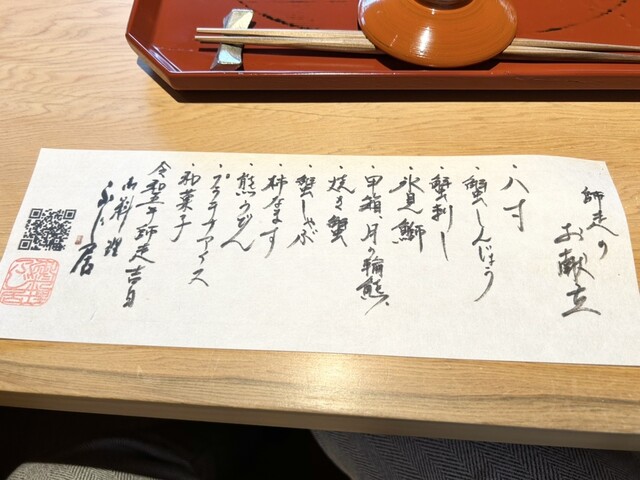 師走の
お献立
・八寸
・蟹しんじょう
・蟹刺し
・氷見鰤
・甲箱、月の輪熊
・焼き蟹
・蟹しゃぶ
・柿なます
・熊うどん
・プラチナアイス
・和菓子
令和五年師走吉日
御料理
ふじ居